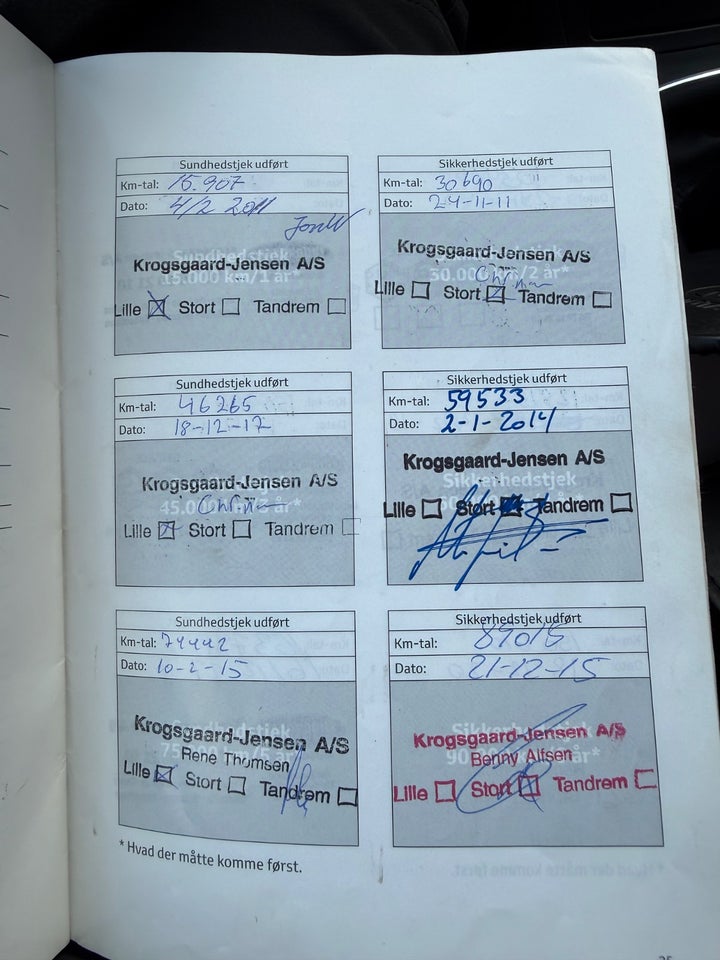 Sundhedstjek udført
Km-tal: 15.907
Dato: 4/2 2011
Krogsgaard-Jensen A/S
Sundhedstjek
15.000 km/1 år*
Lille Stort Tandrem
Sikkerhedstjek udført
Km-tal: 30690
Dato: 24-11-11
Krogsgaard-Jensen A/S
30.000 km/2 år*
Lille Stort Tandrem
Sundhedstjek udført
Km-tal: 46265
Dato: 18-12-12
Krogsgaard-Jensen A/S
45.000
Lille Stort Tandrem
Sikkerhedstjek udført
Km-tal: 59533
Dato: 2-1-2014
Krogsgaard-Jensen A/S
Sikkerhedstjek
Lille Stort Tandrem
Sundhedstjek udført
Km-tal: 74442
Dato: 10-2-15
Krogsgaard-Jensen A/S
Rene Thomsen
Lille Stort Tandrem
Sikkerhedstjek udført
Km-tal: 89015
Dato: 21-12-15
Krogsgaard-Jensen A/S
Benny Alfsen
Lille Stort Tandrem
* Hvad der måtte komme først.